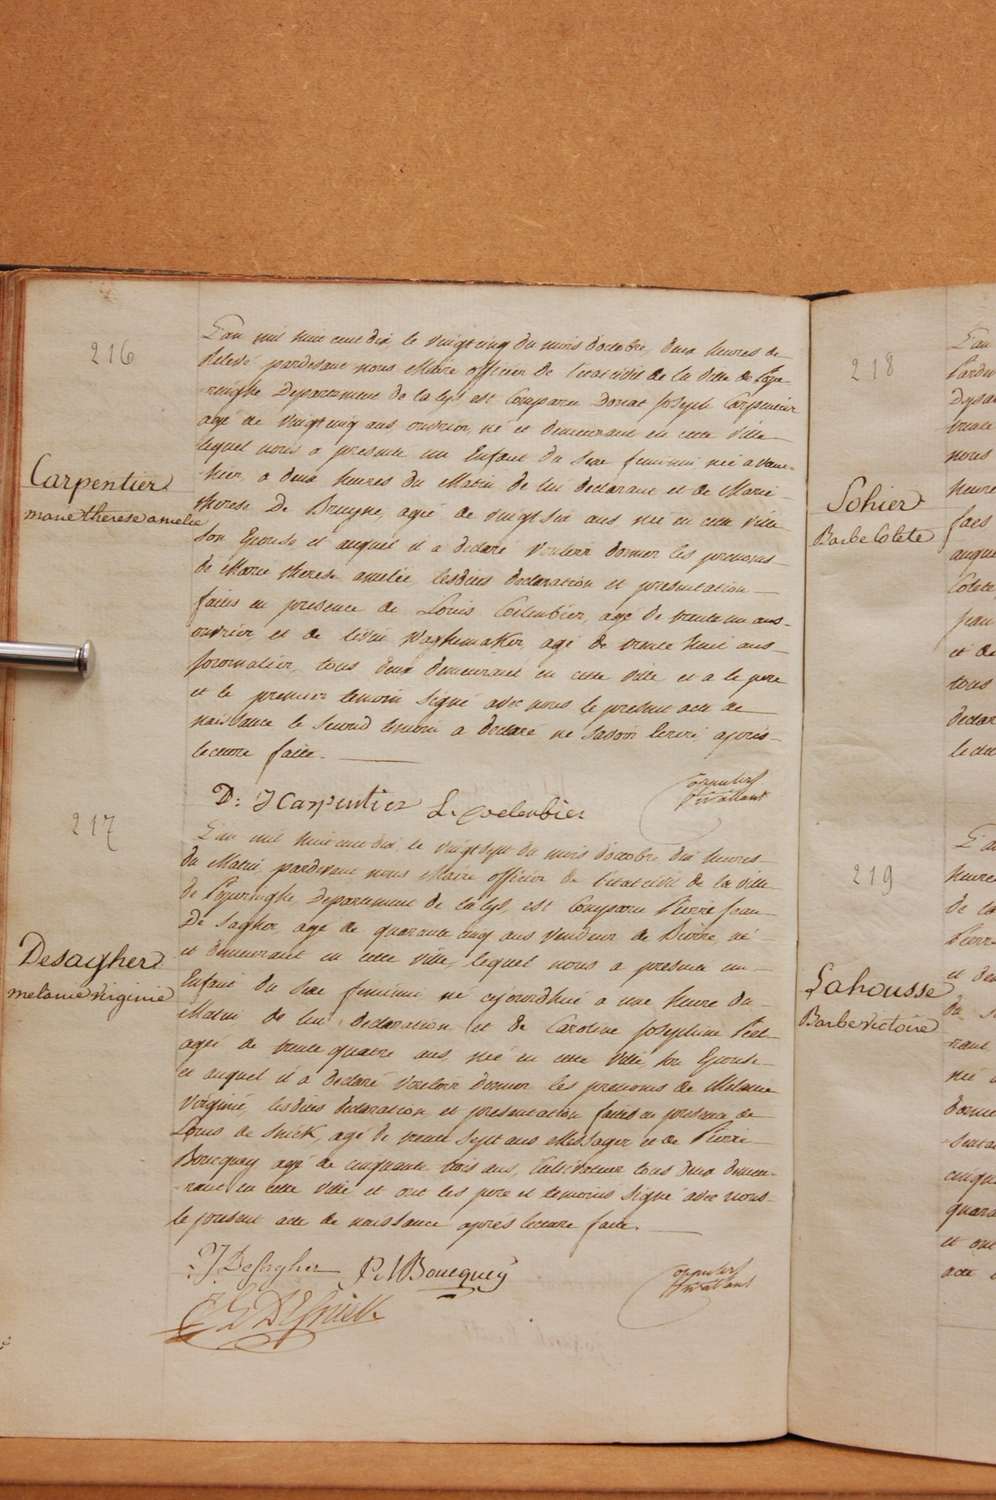 216
Carpentier
marie therese amelie
L'an mil huit cent dix le vingt cinq du mois d'octobre, deux heures de
relevé pardevant nous Maire officier de l'etat civil de la ville de Pope-
ringhe Departement de la lys est Comparu Donat Joseph Carpentier
agé de vingt cinq ans ouvrier, né et demeurant en cette ville
lequel nous a presenté un Enfant du sexe feminin née avant-
hier, a deux heures du Matin de lui declarant et de Marie
therese De Bruyne, agée de vingt six ans née en cette ville
son Epouse et auquel il a declaré vouloir donner les prenoms
de Marie therese amelie lesdites declaration et presentation
faites en presence de Louis Colenbier, agé de trente un ans
ouvrier et de Waghemaker, agé de trente huit ans
journalier, tous deux demeurant en cette ville et a le pere
et le premier temoin signé avec nous le present acte de
naissance le second temoin a declaré ne savoir ecrire après
lecture faite.
D: J Carpentier L. Colenbier
217
Desagher
melanie virginie
L'an mil huit cent dix le vingt sept du mois d'octobre dix heures
du Matin pardevant nous Maire officier de l'etat civil de la ville
de Poperinghe, Departement de la lys, est Comparu Pierre Jean
De Sagher agé de quarante cinq ans vendeur de Bierre, né
et demeurant en cette ville, lequel nous a presenté un
Enfant du sexe feminin né cejourdhui a une heure du
Matin de lui, declaration et de Caroline Josephine
agée de trente quatre ans, née en cette ville son Epouse
et auquel il a declaré vouloir donner les prenoms de Melanie
Virginie, lesdites declaration et presentation faites en presence de
Louis de Snick, agé de trente sept ans Messager et de Pierre
Boucquey agé de cinquante trois ans, Cultivateur tous deux demeu-
rant en cette ville et ont les pere et temoins signé avec nous
le present acte de naissance après lecture faite.
PJ DeSagher P. J Boucquey
L DeSnick
218
Sohier
Barbe Colete
219
Lahousse
Barbe victoire
L'an
heure
et de
tous
declar
heure
et ont
acte